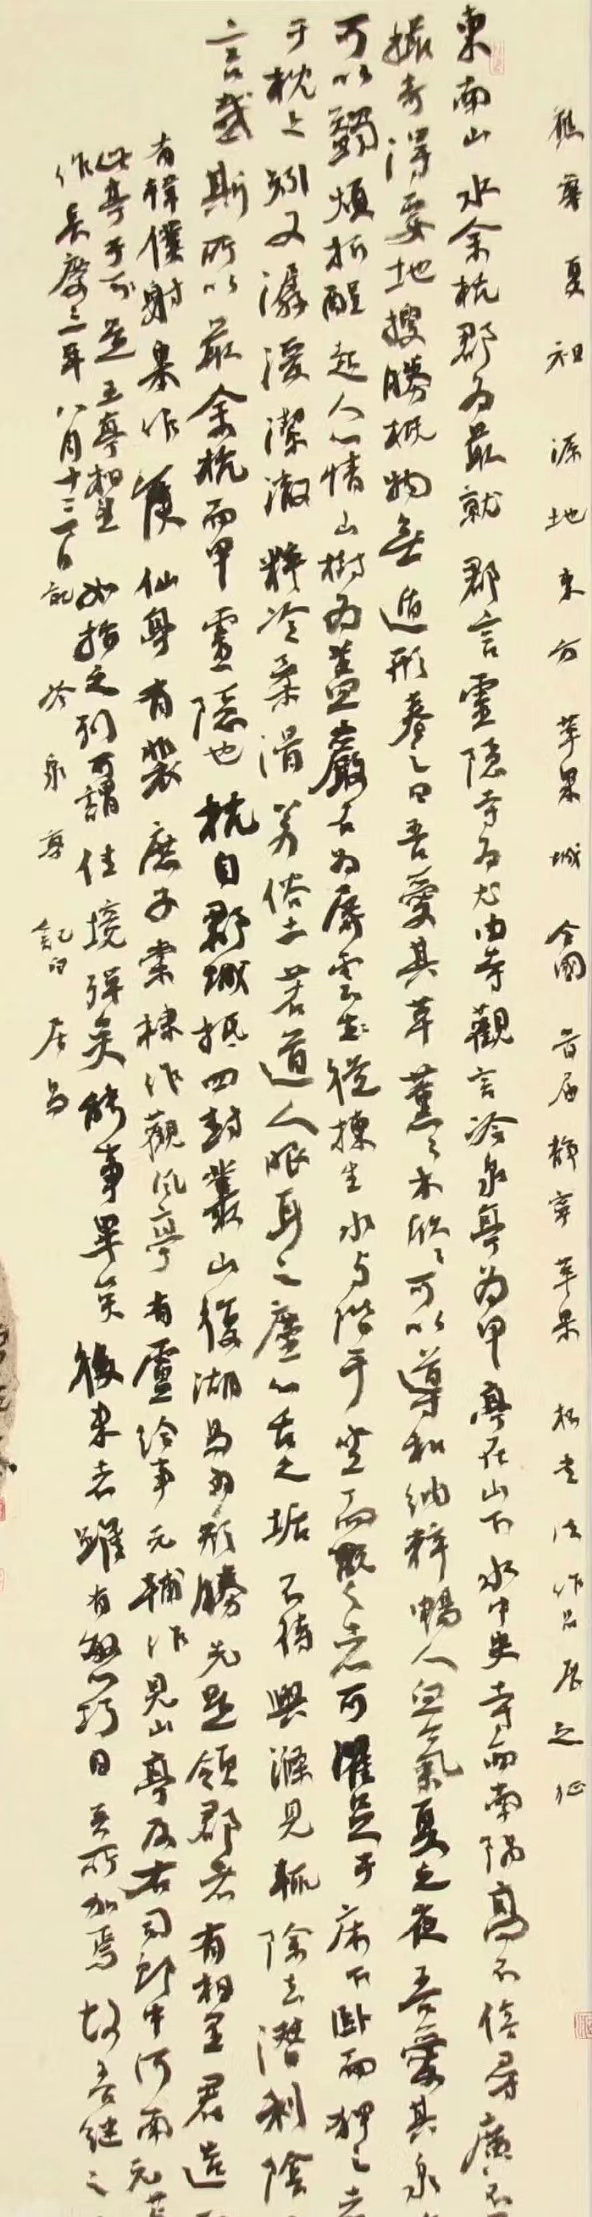 源地東方 苹果城 全國首届静寧苹果杯書法作品展之征
東南山水余杭郡为最就郡言靈隱寺为尤由寺觀言冷泉亭为甲亭在山下水中央寺西南隅高不倍尋廣不
撮奇得要地搜勝概物無遁形春之日吾愛其草薰々木欣々可以導和納粹暢人血氣夏之夜吾愛其泉
可以蠲煩析酲起人心情山樹为蓋巖石为屏雲從棟生水与階平坐而玩之者可濯足于床下卧而狎之者
于枕上矧又潺湲潔澈粹冷柔滑若俗士若道人眼耳之塵心舌之垢不待盥滌見輒除去潛利陰
言哉斯所以最余杭而甲靈隱也杭自郡城抵四封叢山復湖易为形勝先是領郡者有相里君造
有韓僕射皋作候仙亭有裴庶子棠棣作觀風亭有盧給事元輔作見山亭及右司郎中河南元
此亭于是五亭相望如指之列可謂佳境殫矣能事畢矣後來者雖有敏心巧目無所加焉故吾継之
作長慶三年八月十三日記 冷泉亭記 白居易